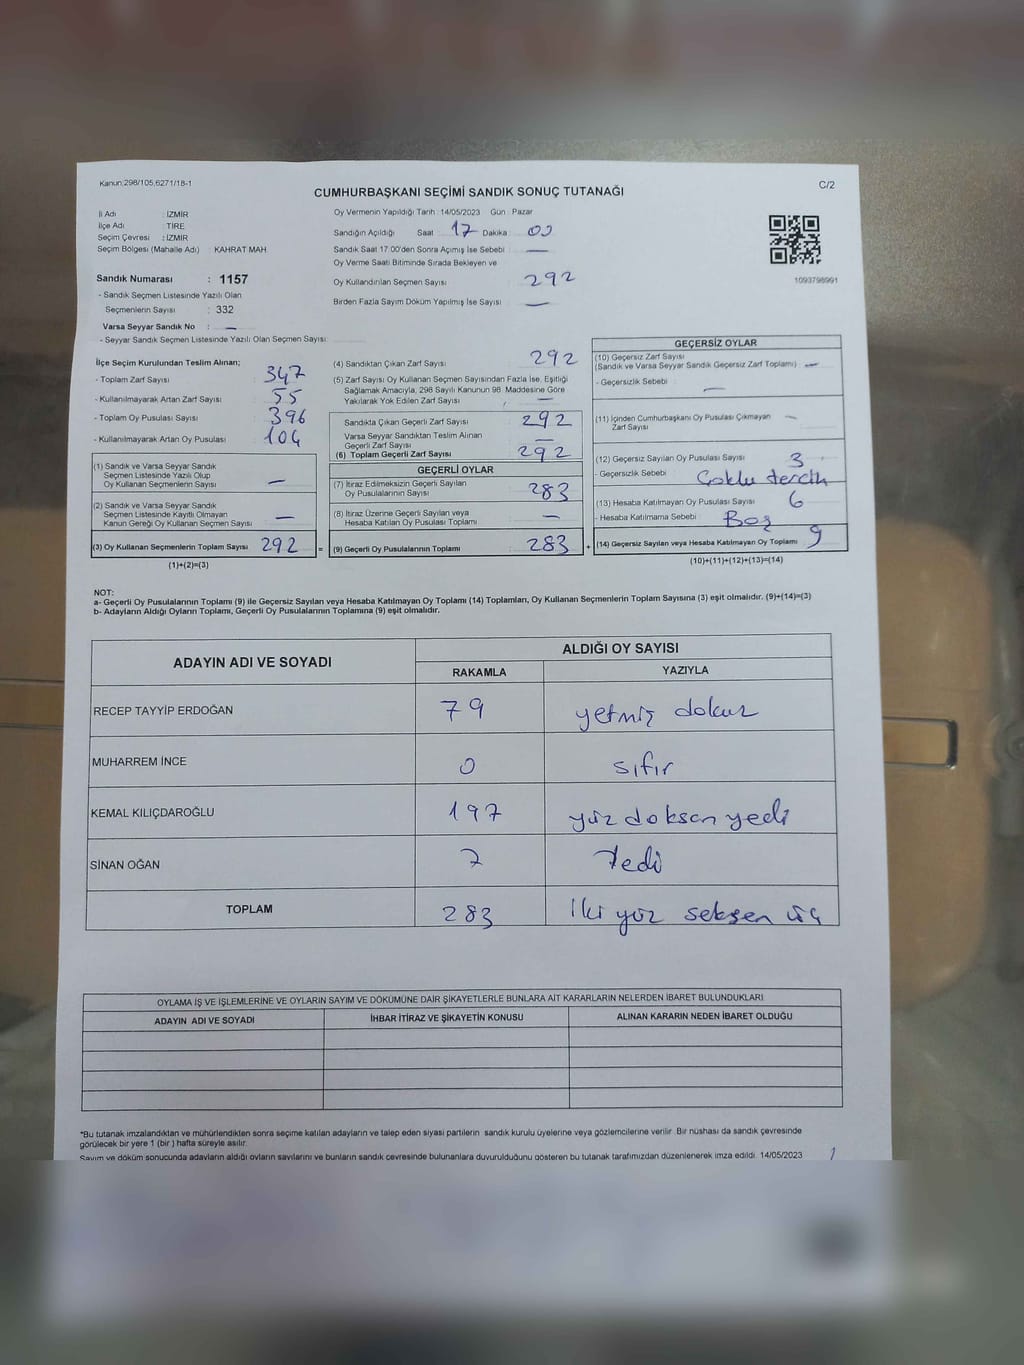 Kanun:298/105,6271/18-1
C/2
CUMHURBAŞKANI SEÇİMİ SANDIK SONUÇ TUTANAĞI
İl Adı : İZMİR
İlçe Adı : TİRE
Seçim Çevresi : İZMİR
Seçim Bölgesi (Mahalle Adı) : KAHRAT MAH.
Sandık Numarası : 1157
- Sandık Seçmen Listesinde Yazılı Olan
Seçmenlerin Sayısı : 332
Varsa Seyyar Sandık No : —
- Seyyar Sandık Seçmen Listesinde Yazılı Olan Seçmen Sayısı:
Oy Vermenin Yapıldığı Tarih : 14/05/2023 Gün : Pazar
Sandığın Açıldığı Saat : 17 Dakika : 00
Sandık Saat 17.00'den Sonra Açımış İse Sebebi : —
Oy Verme Saati Bitiminde Sırada Bekleyen ve
Oy Kullandırılan Seçmen Sayısı : 292
Birden Fazla Sayım Döküm Yapılmış İse Sayısı : —
1093798991
İlçe Seçim Kurulundan Teslim Alınan;
- Toplam Zarf Sayısı : 347
- Kullanılmayarak Artan Zarf Sayısı : 55
- Toplam Oy Pusulası Sayısı : 396
- Kullanılmayarak Artan Oy Pusulası : 104
(1) Sandık ve Varsa Seyyar Sandık
Seçmen Listesinde Yazılı Olup
Oy Kullanan Seçmenlerin Sayısı : —
(2) Sandık ve Varsa Seyyar Sandık
Seçmen Listesinde Kayıtlı Olmayan
Kanun Gereği Oy Kullanan Seçmen Sayısı : —
(3) Oy Kullanan Seçmenlerin Toplam Sayısı : 292
(1)+(2)=(3)
(4) Sandıktan Çıkan Zarf Sayısı : 292
(5) Zarf Sayısı Oy Kullanan Seçmen Sayısından Fazla İse, Eşitliği
Sağlamak Amacıyla, 298 Sayılı Kanunun 98. Maddesine Göre
Yakılarak Yok Edilen Zarf Sayısı : —
Sandıkta Çıkan Geçerli Zarf Sayısı : 292
Varsa Seyyar Sandıktan Teslim Alınan
Geçerli Zarf Sayısı : —
(6) Toplam Geçerli Zarf Sayısı : 292
GEÇERLİ OYLAR
(7) İtiraz Edilmeksizin Geçerli Sayılan
Oy Pusulalarının Sayısı : 283
(8) İtiraz Üzerine Geçerli Sayılan veya
Hesaba Katılan Oy Pusulası Toplamı : —
= (9) Geçerli Oy Pusulalarının Toplamı : 283
GEÇERSİZ OYLAR
(10) Geçersiz Zarf Sayısı
(Sandık ve Varsa Seyyar Sandık Geçersiz Zarf Toplamı) : —
- Geçersizlik Sebebi : —
(11) İçinden Cumhurbaşkanı Oy Pusulası Çıkmayan
Zarf Sayısı : —
(12) Geçersiz Sayılan Oy Pusulası Sayısı : 3
- Geçersizlik Sebebi : Çoklu tercih
(13) Hesaba Katılmayan Oy Pusulası Sayısı : 6
- Hesaba Katılmama Sebebi : Boş
+ (14) Geçersiz Sayılan veya Hesaba Katılmayan Oy Toplamı : 9
(10)+(11)+(12)+(13)=(14)
NOT:
a- Geçerli Oy Pusulalarının Toplamı (9) ile Geçersiz Sayılan veya Hesaba Katılmayan Oy Toplamı (14) Toplamları, Oy Kullanan Seçmenlerin Toplam Sayısına (3) eşit olmalıdır. (9)+(14)=(3)
b- Adayların Aldığı Oyların Toplamı, Geçerli Oy Pusulalarının Toplamına (9) eşit olmalıdır.
ADAYIN ADI VE SOYADI
ALDIĞI OY SAYISI
RAKAMLA YAZIYLA
RECEP TAYYİP ERDOĞAN 79 yetmiş dokuz
MUHARREM İNCE 0 sıfır
KEMAL KILIÇDAROĞLU 197 yüz doksan yedi
SİNAN OĞAN 7 Yedi
TOPLAM 283 İki yüz seksen üç
OYLAMA İŞ VE İŞLEMLERİNE VE OYLARIN SAYIM VE DÖKÜMÜNE DAİR ŞİKAYETLERLE BUNLARA AİT KARARLARIN NELERDEN İBARET BULUNDUKLARI
ADAYIN ADI VE SOYADI İHBAR İTİRAZ VE ŞİKAYETİN KONUSU ALINAN KARARIN NEDEN İBARET OLDUĞU
*Bu tutanak imzalandıktan ve mühürlendikten sonra seçime katılan adayların ve talep eden siyasi partilerin sandık kurulu üyelerine veya gözlemcilerine verilir. Bir nüshası da sandık çevresinde
görülecek bir yere 1 (bir ) hafta süreyle asılır.
Sayım ve döküm sonucunda adayların aldığı oyların sayılarını ve bunların sandık çevresinde bulunanlara duyurulduğunu gösteren bu tutanak tarafımızdan düzenlenerek imza edildi. 14/05/2023